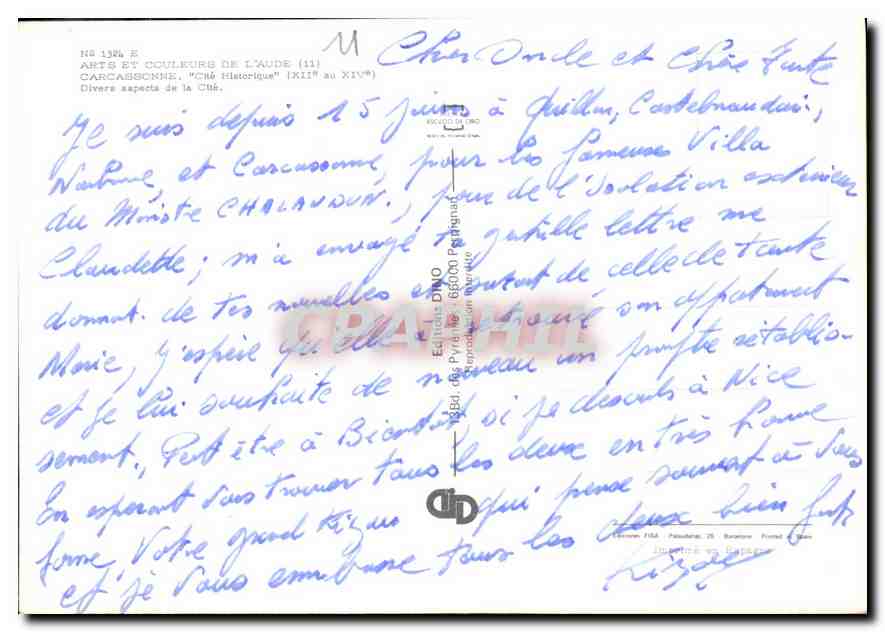 No 1324 E
ARTS ET COULEURS DE L'AUDE (11)
CARCASSONNE. "Cité Historique" (XIIe au XIVe)
Divers aspects de la Cité.
11
Cher Oncle et Chère Tante
Je suis depuis 15 jours à Quillan, Castelnaudari,
Narbonne, et Carcassonne, pour les fameuses Villa
du Ministre CHALANDON, pour de l'isolation exterieur
Claudette; m'a envoyé ta gentille lettre me
donnant de tes nouvelles et surtout de celle de tante
Marie, j'espère qu'elle a retrouvé son appartement
et je lui souhaite de nouveau un prompte rétablis-
sement., Peut être à Bientôt, si je descends à Nice
En esperant vous trouver tous les deux en très bonne
forme, Votre grand qui pense souvent à vous
et je vous embrasse tous les deux bien fort
ESCUDO DE ORO
Editions DINO
13Bd. des Pyrénées - 66000 Perpignan
Reproduction Interdite
DID
FISA - Palaudarias, 26 - Barcelona Printed in Spain
Imprimé en Espagne
CPAPHIL